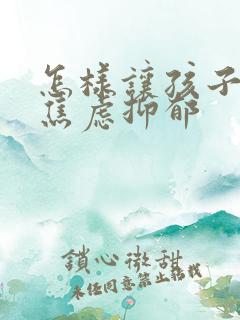 怎样讓孩子
焦虑抑郁
鎖心微甜
未经同意禁止转载